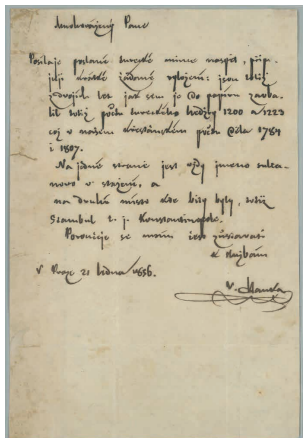 Posílaje poslané turecké mince naspět, přip-
juji krátké žádané vyložení: jsou totiž
dvojích let jak sem je do papíru zaoba-
lil totiž počtu tureckého hedžry 1200 a 1223
což v našem křesťanském počtu dělá 1784
i 1807.
Na jedné straně jest vždy jmeno sulta-
novo v
na druhé místo kde bity byly, totiž
Stambul t. j. Konstantinopole.
Poroučeje se mám čest zůstávati
k službám
V Praze 21 ledna 1856.
V. Hanka